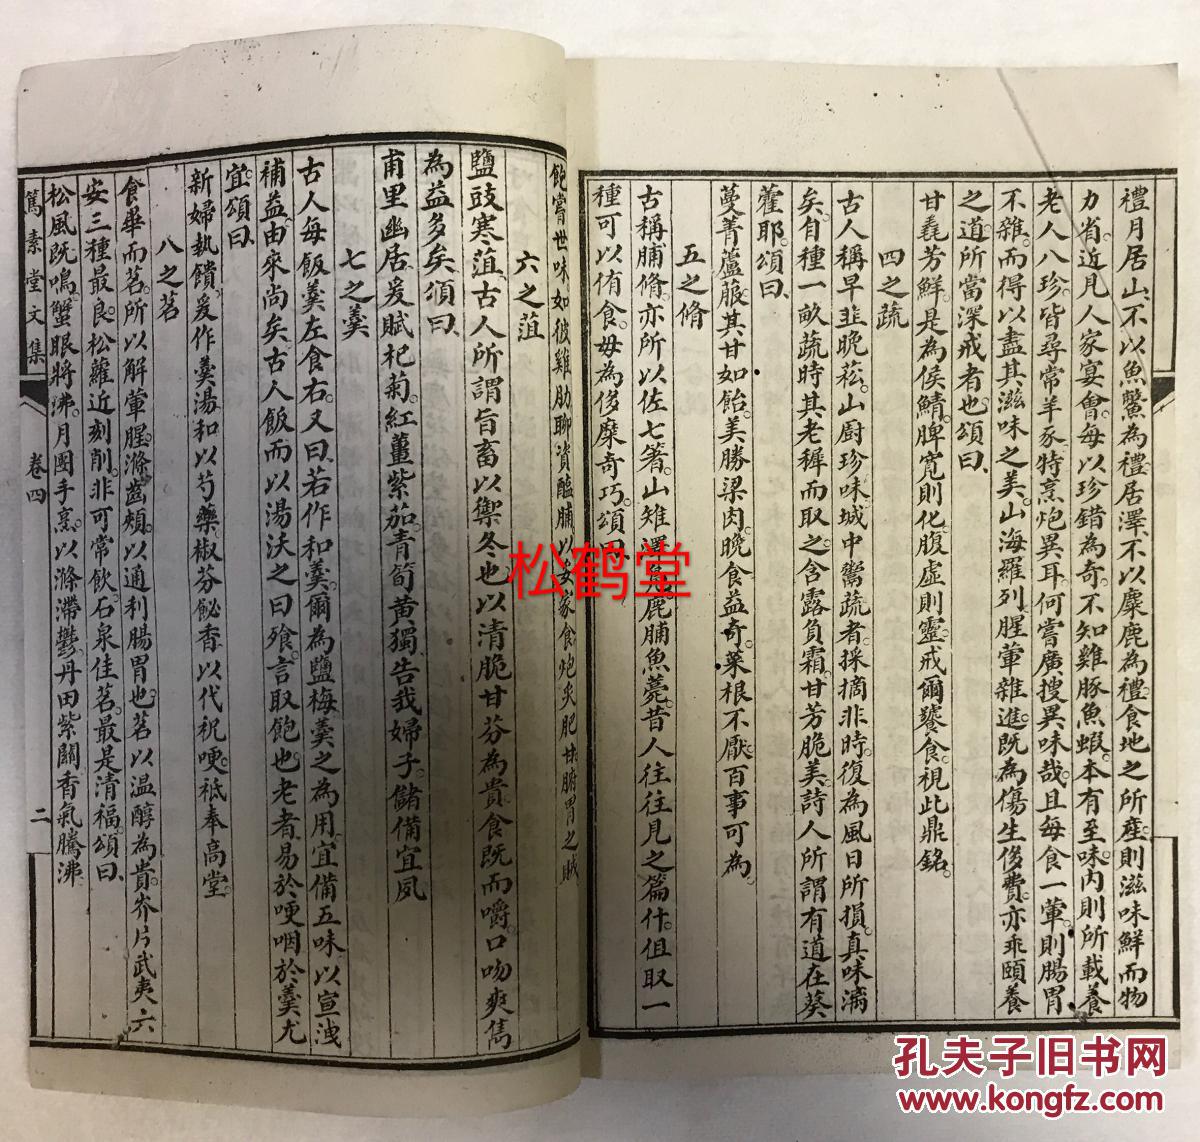 禮月居山不以魚鱉為禮居澤不以麋鹿為禮食地之所產則滋味鮮而物
力省近見人家宴會每以珍錯為奇不知雞豚魚蝦本有至味內則所載養
老人八珍皆尋常羊豕特烹炮異耳何嘗廣搜異味哉且每食一葷則腸胃
不雜而得以盡其滋味之美山海羅列腥葷雜進既為傷生侈費亦乖頤養
之道所當深戒者也頌曰
甘毳芳鮮是為侯鯖脾寬則化腹虛則靈戒爾饕食視此鼎銘
四之蔬
古人稱早韭晚菘山廚珍味城中鬻蔬者採摘非時復為風日所損真味漓
矣自種一畝蔬時其老穉而取之含露負霜甘芳脆美詩人所謂有道在葵
藿耶頌曰
蔓菁蘆菔其甘如飴美勝梁肉晚食益奇菜根不厭百事可為
五之脩
古稱脯脩亦所以佐七箸山雉澤鹿脯魚薧昔人往往見之篇什但取一
種可以侑食毋為侈靡奇巧頌曰
飽嘗世味如彼雞肋聊資醢脯以安家食炮炙肥甘腑胃之賊
六之菹
鹽豉寒菹古人所謂旨畜以禦冬也以清脆甘芬為貴食既而嚼口吻爽雋
為益多矣頌曰
甫里幽居爰賦杞菊紅薑紫茄青筍黃獨告我婦子儲備宜夙
七之羹
古人每飯羹左食右又曰若作和羹爾為鹽梅羹之為用宜備五味以宣洩
補益由來尚矣古人飯而以湯沃之曰飱言取飽也老者易於哽咽於羹尤
宜頌曰
新婦執饋爰作羹湯和以芍藥椒芬飶香以代祝哽祗奉高堂
八之茗
食畢而茗所以解葷腥滌齒頰以通利腸胃也茗以溫醇為貴岕片武夷六
安三種最良松蘿近刻削非可常飲石泉佳茗最是清福頌曰
松風既鳴蟹眼將沸月團手烹以滌滯鬱丹田紫關香氣騰沸
篤素堂文集
卷四
二
松鹤堂
孔夫子旧书网
www.kongfz.com